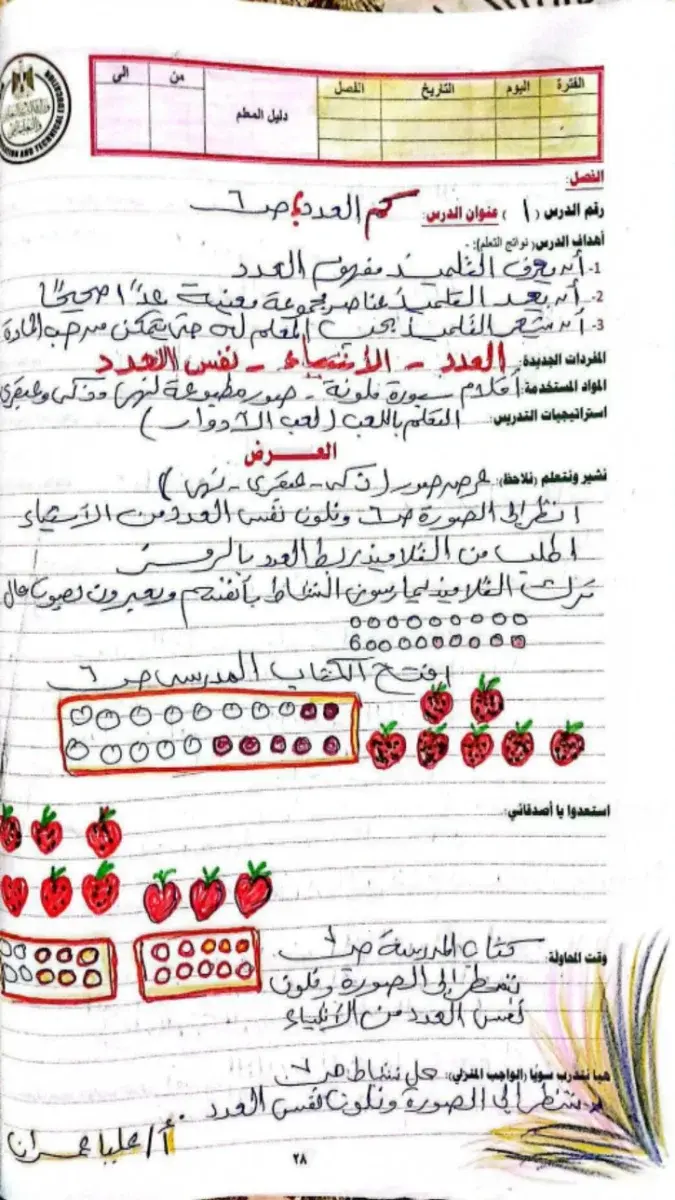 الفترة اليوم التاريخ الفصل دليل المعلم من الى
الفصل:
رقم الدرس ( ١ ) عنوان الدرس: كم العدد؟ ص ٦
أهداف الدرس (نواتج التعلم):
1- أن يعرف التلميذ مفهوم العدد
2- أن يعد التلميذ عناصر مجموعة معينة عدًا صحيحًا
3- أن يشعر التلميذ بحب المعلم له حتى يتمكن من حب المادة
المفردات الجديدة: العدد - الأشياء - نفس العدد
المواد المستخدمة: أقلام سبورة ملونة - صور مطبوعة لنهى وذكى وعبقرى
استراتيجيات التدريس: التعلم باللعب (لعب الأدوار)
العرض
نشير ونتعلم (نلاحظ): عرض صور (ذكى - عبقرى - نهى)
انظر إلى الصورة ص ٦ ونلون نفس العدد من الأشياء
اطلب من التلاميذ ربط العدد بالرمز
ترك التلاميذ يمارسون النشاط بأنفسهم ويعبرون بصوت عال
افتح الكتاب المدرسى ص ٦
استعدوا يا أصدقائي:
وقت المحاولة: كتاب المدرسة ص ٦
ننظر إلى الصورة ونلون
نفس العدد من الأشياء
هيا نتدرب سويًا (الواجب المنزلي): حل نشاط ص ٧
ننظر إلى الصورة ونلون نفس العدد.
أ/ عليا عمران
٢٨